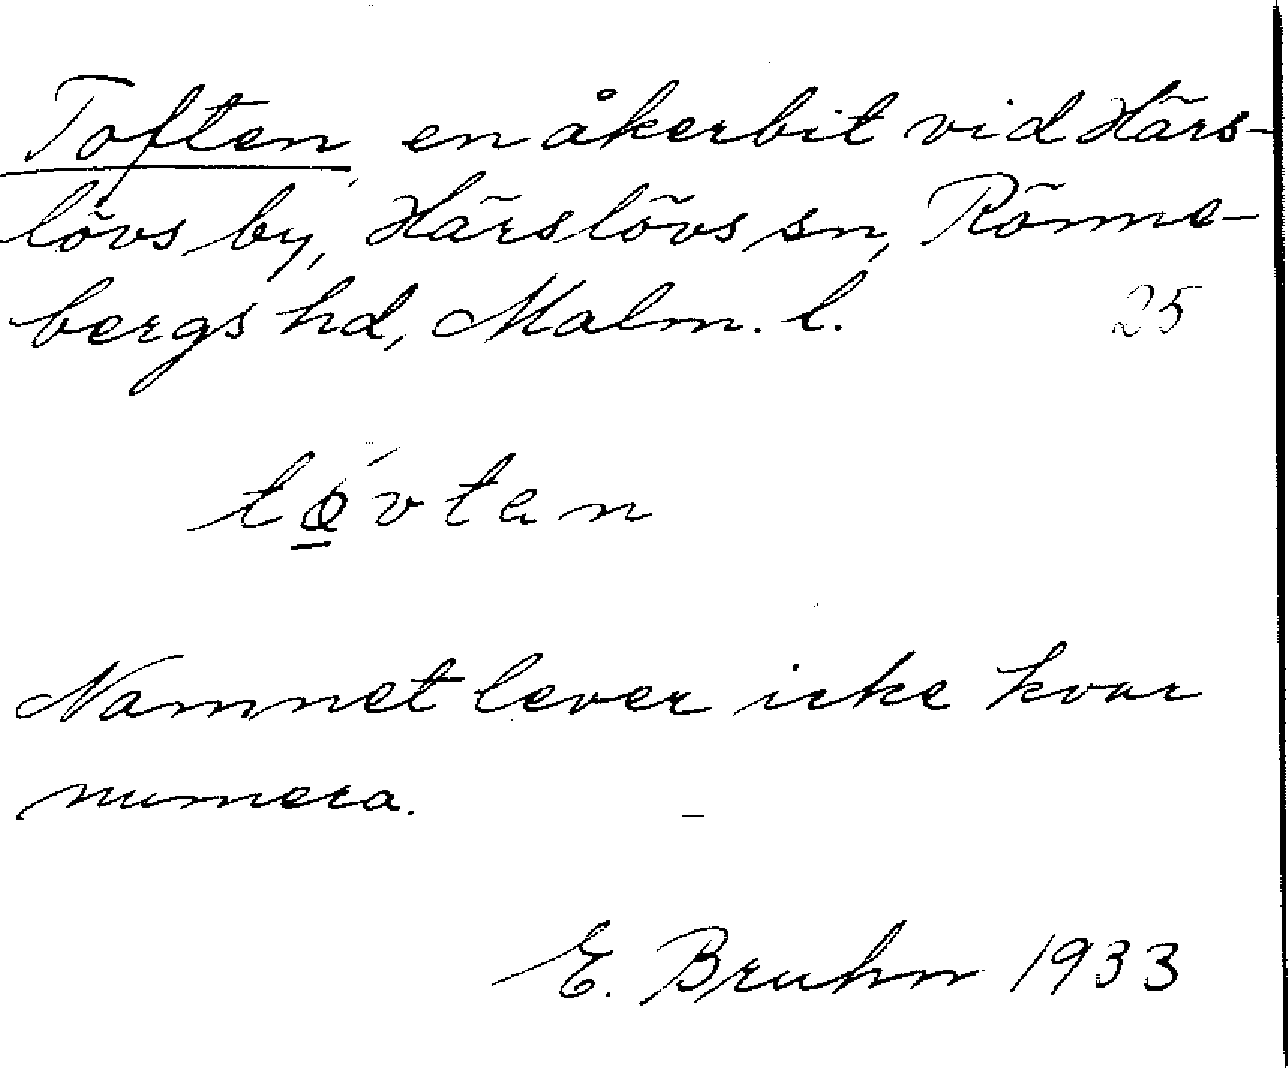 Toften, en åkerbit vid Härs-
lövs by, Härslövs sn, Rönne-
bergs hd, Malm. l. 25
tǿ̱vtan
Namnet lever icke kvar
numera.
E. Bruhn 1933